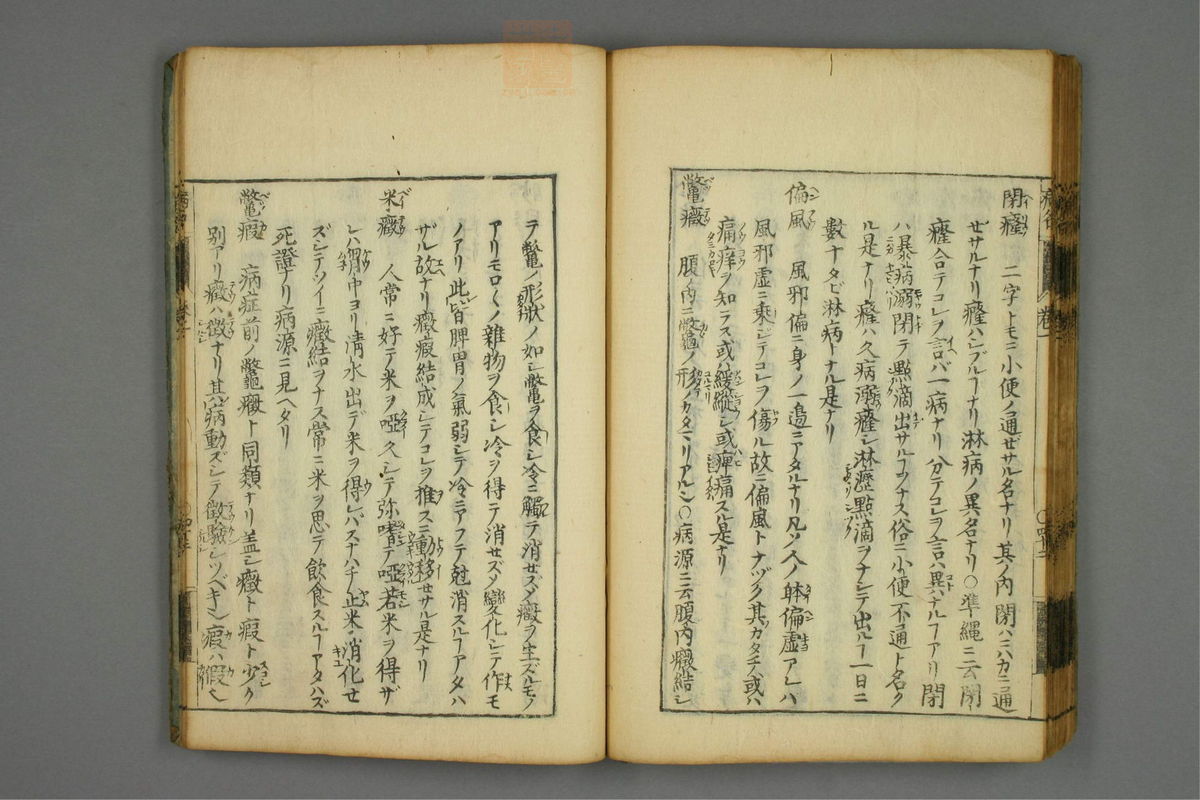 閉癃 二字トモニ小便ノ通ぜサル名ナリ其ノ内閉ハニハカニ通
ぜサルナリ癃ハシブルフナリ淋病ノ異名ナリ○準縄ニ云閉
癃合テコレヲ言バ一病ナリ分テコレヲ言ハ異ナルフアリ閉
ハ暴病溺閉テ點滴出サルフヲナス俗ニ小便不通ト名ク
ル是ナリ癃ハ久病溺癃シ淋瀝點滴ヲナシテ出ルフ一日ニ
數十タビ淋病トナル是ナリ
偏風 風邪偏ニ身ノ一邉ニアタルナリ凡ソ人ノ躰偏虚アレハ
風邪虚ニ乗シテコレヲ傷ル故ニ偏風トナヅク其カタチ或ハ
痛痒ヲ知ラス或ハ緩縦シ或痺痛スル是ナリ
鼈癥 腹ノ内ニ鼈ノ形ノカタマリアルヿ○病源ニ云腹内癥結シ
テ鼈ノ形狀ノ如シ鼈ヲ食シ冷ニ觸テ消せズ癥ヲ生ズルモノ
アリモロ〱ノ雜物ヲ食シ冷ヲ得テ消せズ變化シテ作モ
ノアリ此皆脾胃ノ氣弱シテ冷ニアフテ尅消スルフアタハ
ザル故ナリ癥瘕結成シテコレヲ推スニ動移せサル是ナリ
米癥 人常ニ好テ米ヲ啞久シテ弥嗜テ啞若米ヲ得ザ
レハ胷中ヨリ清水出デ米ヲ得レバスナハチ止米消化せ
ズシテツイニ癥結ヲナス常ニ米ヲ思テ飲食スルフアタハズ
死證ナリ病源ニ見ヘタリ
鼈瘕 病症前ノ鼈癥ト同類ナリ蓋シ癥ト瘕ト少ク
別アリ癥ハ徴ナリ其病動ズシテ徴驗シツベキ也瘕ハ假也